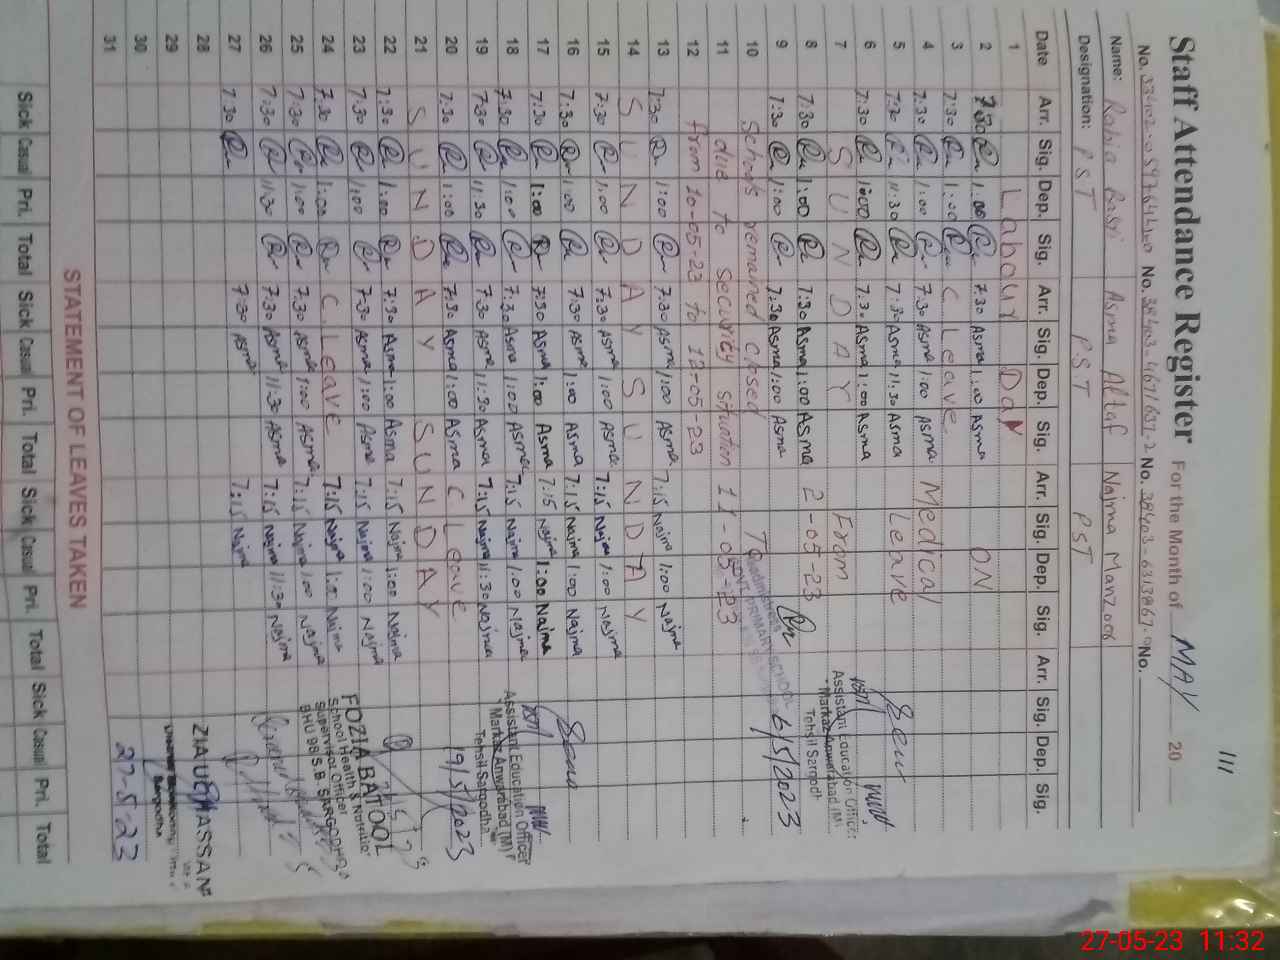 111
Staff Attendance Register For the Month of MAY 20
No. No. 38403-4671637-2 No. 38403-6313867-0 No.
Name: Rabia Asma Altaf Najma Manzoor
Designation: PST PST PST
Date Arr. Sig. Dep. Sig. Arr. Sig. Dep. Sig. Arr. Sig. Dep. Sig. Arr. Sig. Dep. Sig.
1 Labour Day
2 7:30 1:00 7:30 Asma 1:00 Asma ON
3 7:30 1:00 C Leave
4 7:30 1:00 7:30 Asma 1:00 Asma Medical
5 7:30 11:30 7:30 Asma 11:30 Asma Leave
6 7:30 1:00 7:30 Asma 1:00 Asma
7 SUNDAY From
8 7:30 1:00 7:30 Asma 1:00 Asma 2-05-23
9 7:30 1:00 7:30 Asma 1:00 Asma To 6/5/2023
10 Schools remained closed
11 due to security situation 11-05-23
12 from 10-05-23 to 12-05-23
13 7:30 1:00 7:30 Asma 1:00 Asma 7:15 Najma 1:00 Najma
14 SUNDAY SUNDAY
15 7:30 1:00 7:30 Asma 1:00 Asma 7:15 Najma 1:00 Najma
16 7:30 1:00 7:30 Asma 1:00 Asma 7:15 Najma 1:00 Najma
17 7:30 1:00 7:30 Asma 1:00 Asma 7:15 Najma 1:00 Najma
18 7:30 1:00 7:30 Asma 1:00 Asma 7:15 Najma 1:00 Najma
19 7:30 11:30 7:30 Asma 11:30 Asma 7:15 Najma 11:30 Najma
20 7:30 1:00 7:30 Asma 1:00 Asma C Leave 19/5/2023
21 SUNDAY SUNDAY
22 7:30 1:00 7:30 Asma 1:00 Asma 7:15 Najma 1:00 Najma
23 7:30 1:00 7:30 Asma 1:00 Asma 7:15 Najma 1:00 Najma
24 7:30 1:00 C. Leave 7:15 Najma 1:00 Najma
25 7:30 1:00 7:30 Asma 1:00 Asma 7:15 Najma 1:00 Najma
26 7:30 11:30 7:30 Asma 11:30 Asma 7:15 Najma 11:30 Najma
27 7:30 7:30 Asma 7:15 Najma
28
29
30
31 27-5-23
Headmistress
GOVT. PRIMARY SCHOOL
Assistant Education Officer
Markaz Anwarabad (M)
Tehsil Sargodh
Assistant Education Officer
Markaz Anwarabad (M)
Tehsil Sargodha
FOZIA BATOOL
School Health & Nutrition
Supervisor Officer
BHU 98 S.B SARGODHA
ZIAUL HASSAN
STATEMENT OF LEAVES TAKEN
Sick Casual Pri. Total Sick Casual Pri. Total Sick Casual Pri. Total Sick Casual Pri. Total
27-05-23 11:32